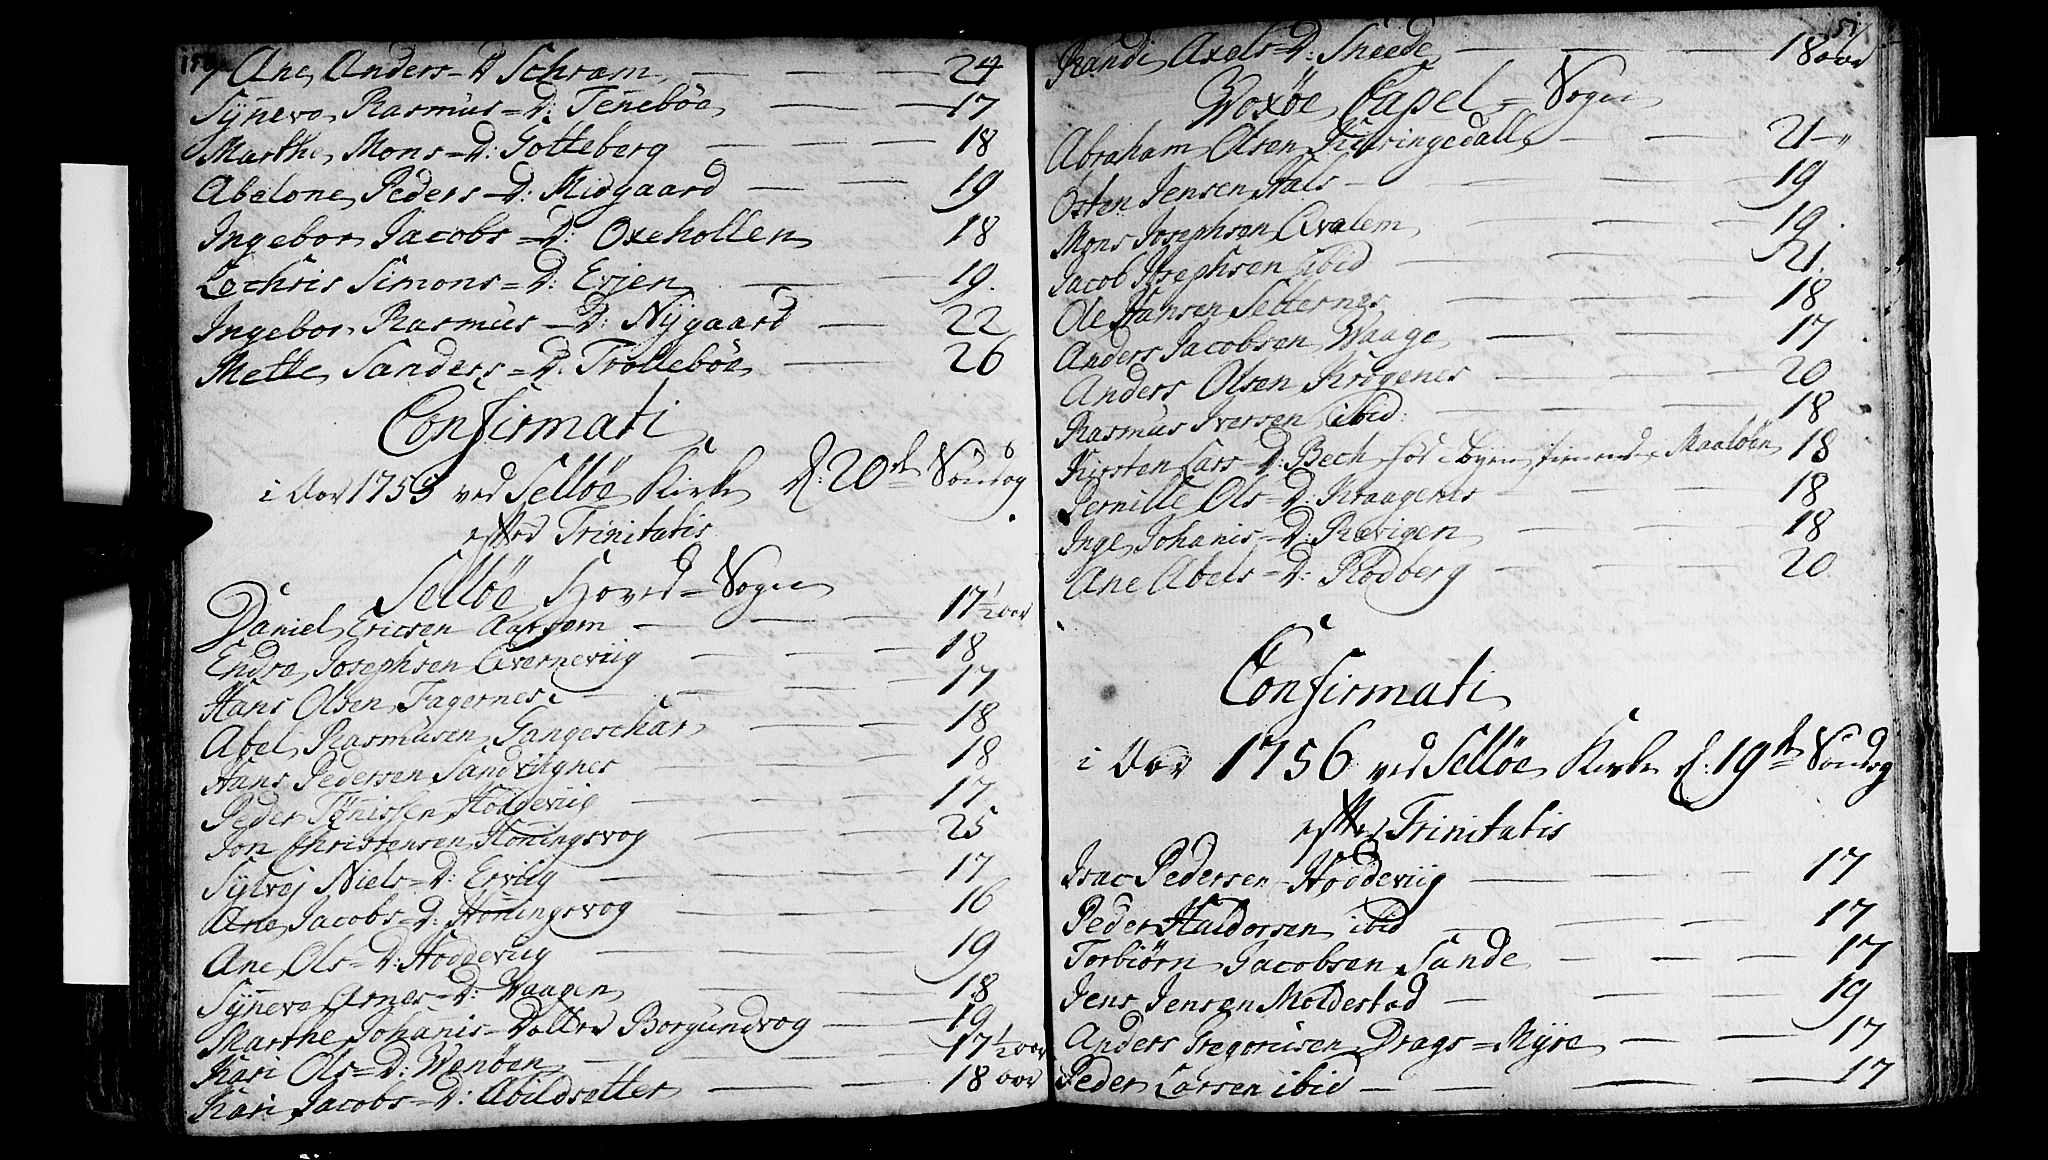 Ane Anders=D Schram 24
Synneve Rasmus=D: Tennebøe 17
Marthe Mons=D: Gotteberg 18
Abelone Peders=D: Midgaard 19
Ingebor Jacobs=D: Oxehollen 18
Lechris Simons=D: Ervjen 19.
Ingebor Rasmus=D: Nÿgaard 22
Mette Sanders=D: Trollebøe 26
Confirmati
i Aar 1755 ved Selløe Kirke d: 20de Søndag
efter Trinitatis
Selløe Hoved=Sogn
Daniel Ericsen Aarsem 17½ aar
Endre Josephsen Qverneviig 18
Hans Olsen Fagernes 17
Abel Rasmusen Gangeschar 18
Hans Pedersen Sandvignes 18
Peder Tønissen Hoddeviig 17
Jon Christensen Honingsvog 25
Sÿlvej Niels=D: Erviig 17
Ane Jacobs=D: Honingsvog 16
Ane Ols=D: Hoddeviig 19
Sÿnneve Arnes=D: Waagen 18
Marthe Johanis=Datter Borgundvog 19
Kari Ols=D: Wenøen 17½ aar
Kari Jacobs=D: Abildsetter 18 aar
151
Randi Axels=D: Sneede 18 aar
Woxøe Capel=Sogn
Abraham Olsen Kierringedall 21
Osten Jensen Hals 19
Mons Josephsen Qvalem 19.
Jacob Josephsen ibid 21.
Ole Hansen Setternes 18
Anders Jacobsen Waage 17
Anders Olsen Krogenes 20
Rasmus Iversen ibid: 18
Kirsten Lars=D: Bech fød i Byen, tienende Maaløen 18
Pernille Ols=D: Kraagenes 18
Inge Johanis=D: Revigen 18
Ane Abels=D: Rødberg 20
Confirmati
i Aar 1756 ved Selløe Kirke d: 19de Søndag
efter Trinitatis
Isac Pedersen Hoddeviig 17
Peder Haldorsen ibid 17
Torbiørn Jacobsen Sande 17
Jens Jensen Moldestad 19
Anders Gregoriusen Drags=Mÿre 17
Peder Larsen ibid 17